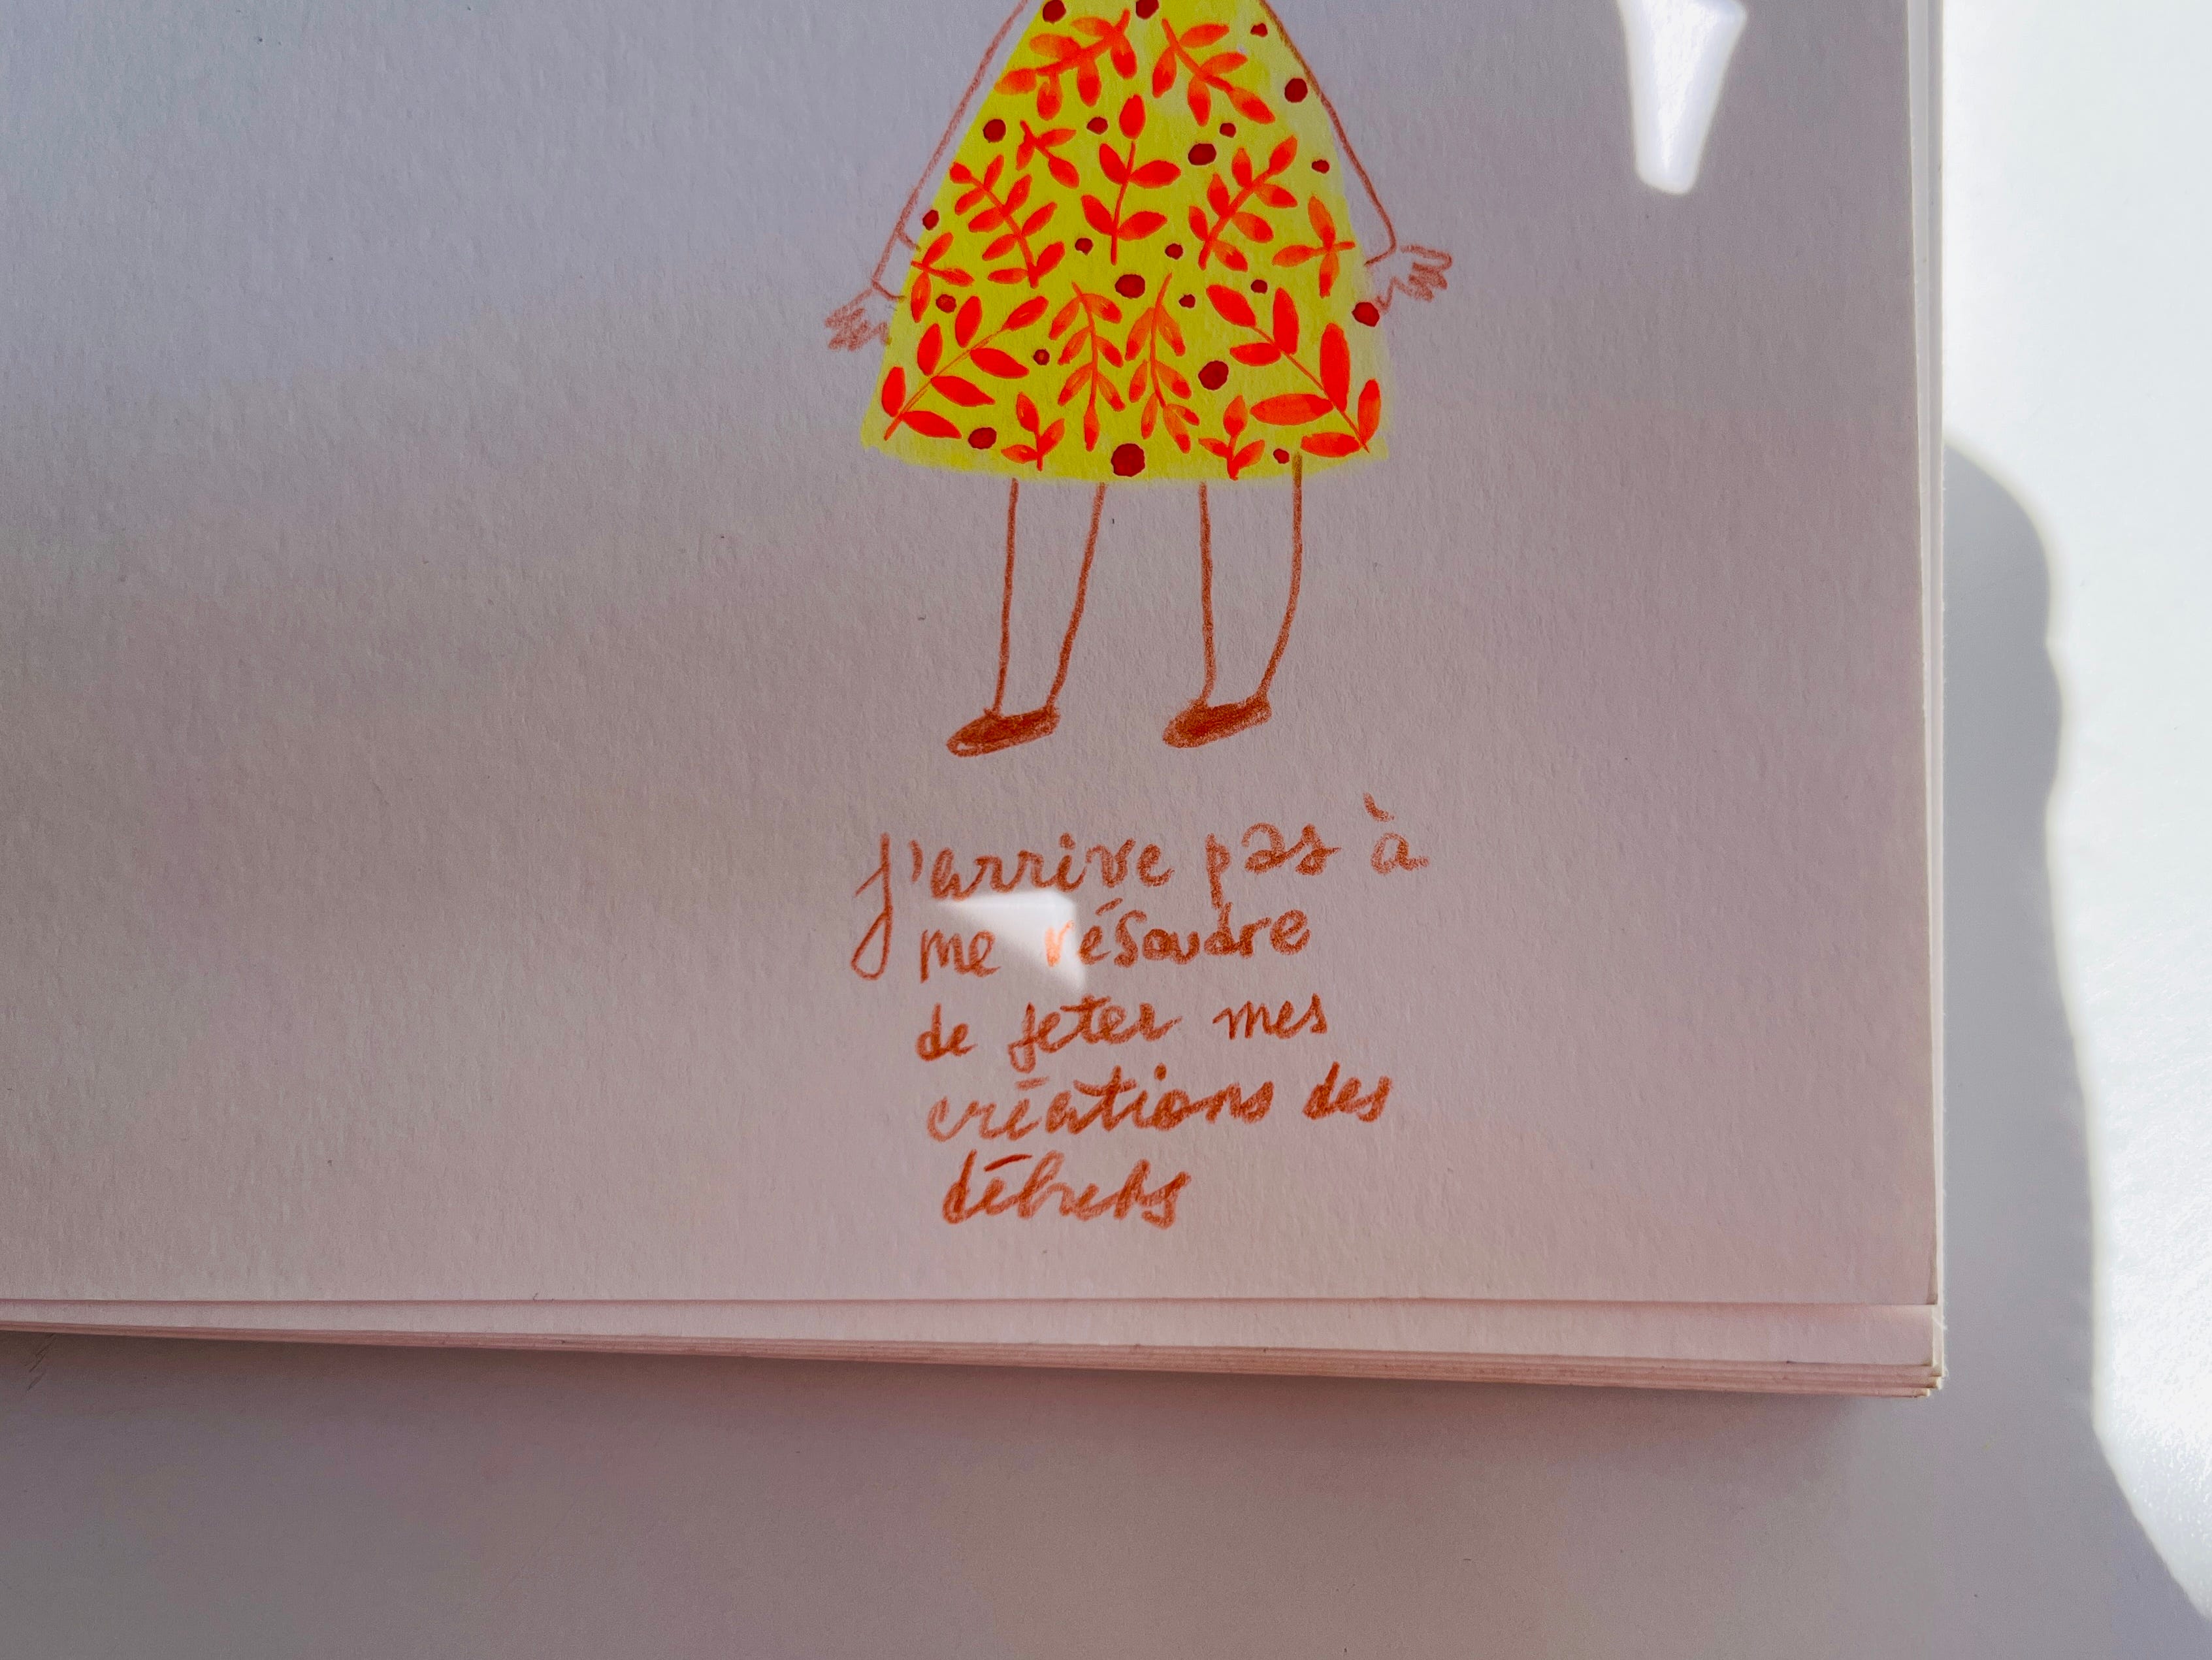 J'arrive pas à
me résoudre
de jeter mes
créations des
débuts